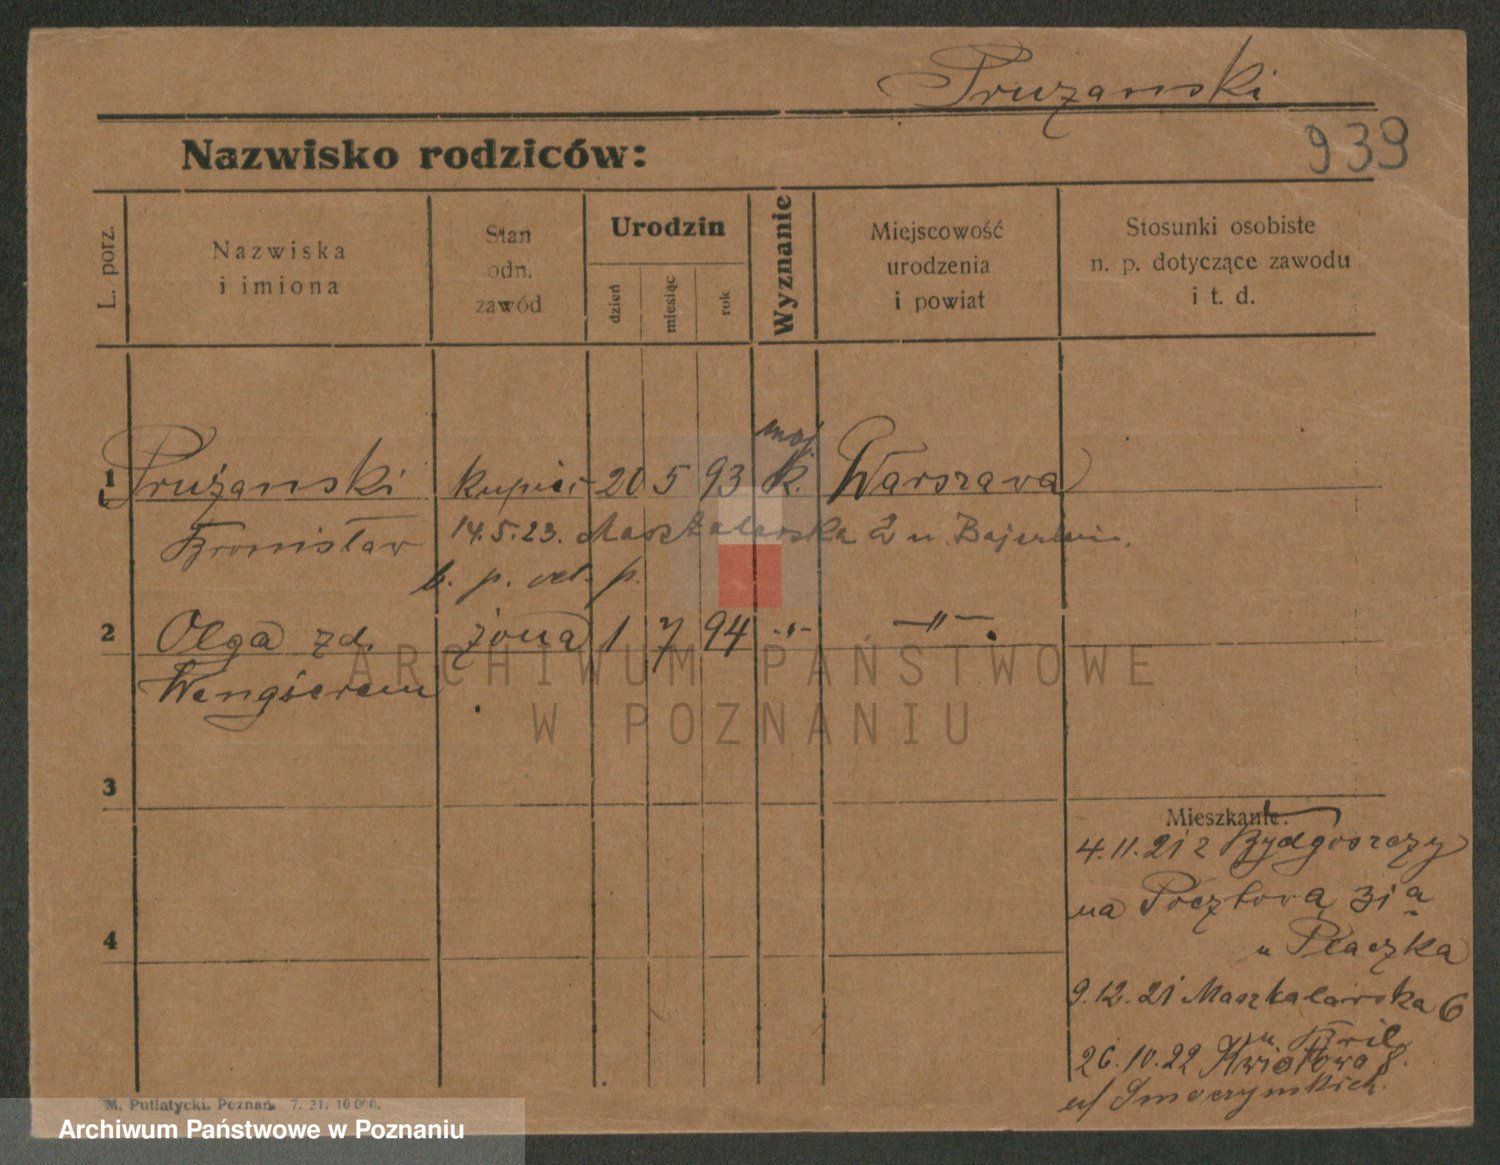 Pruzanski
939
Nazwisko rodziców:
L. porz.
Nazwiska
i imiona
Stan
odn.
zawód
Urodzin
dzień
miesiąc
rok
Wyznanie
Miejscowość
urodzenia
i powiat
Stosunki osobiste
n. p. dotyczące zawodu
i t. d.
moj
1 Prużanski kupiec 20 5 93 k. Warszawa
Bronisław 14.5.23. Masztalerska 2 u
b. p.
2 Olga zd. żona 1 7 94 -"- -"-
Wengierem
3
Mieszkanie:
4.11.21 z Bydgoszczy
na Pocztową 31 a
4
u Płaczka
9.12.21 Masztalarska 6
u Bril
26.10.22 Kwiatowa 8.
u/
M. Putiatycki, Poznań. 7. 21. 10 000.
ARCHIWUM PAŃSTWOWE
W POZNANIU
Archiwum Państwowe w Poznaniu